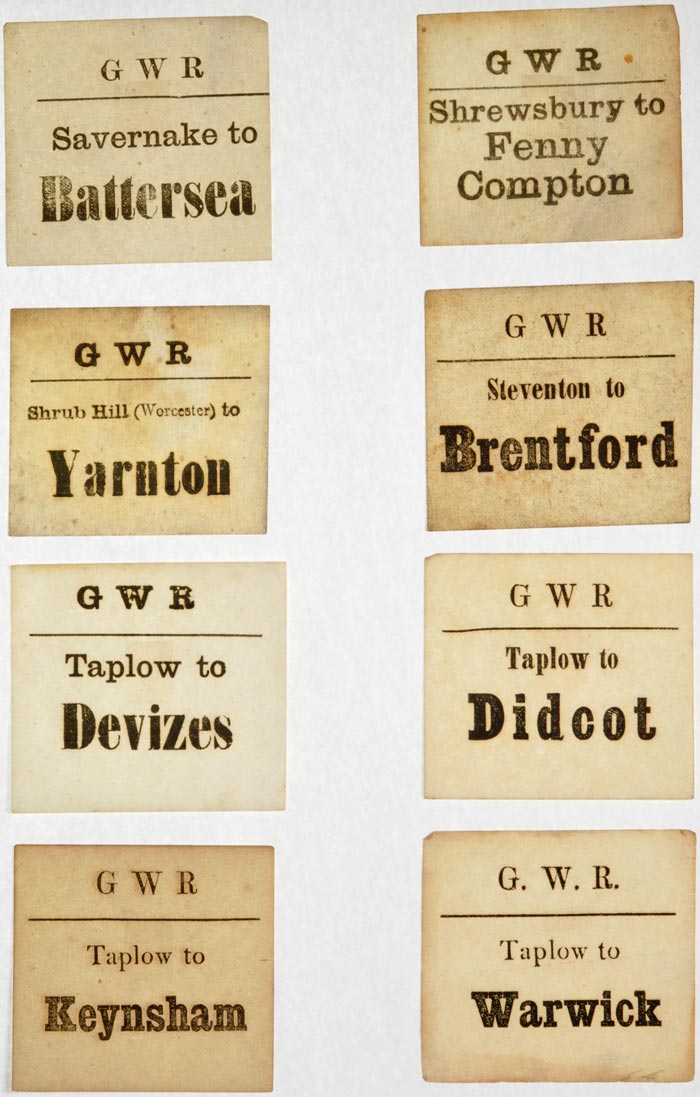 G W R
Savernake to
Battersea
G W R
Shrewsbury to
Fenny
Compton
G W R
Shrub Hill (Worcester) to
Yarnton
G W R
Steventon to
Brentford
G W R
Taplow to
Devizes
G W R
Taplow to
Didcot
G W R
Taplow to
Keynsham
G. W. R.
Taplow to
Warwick